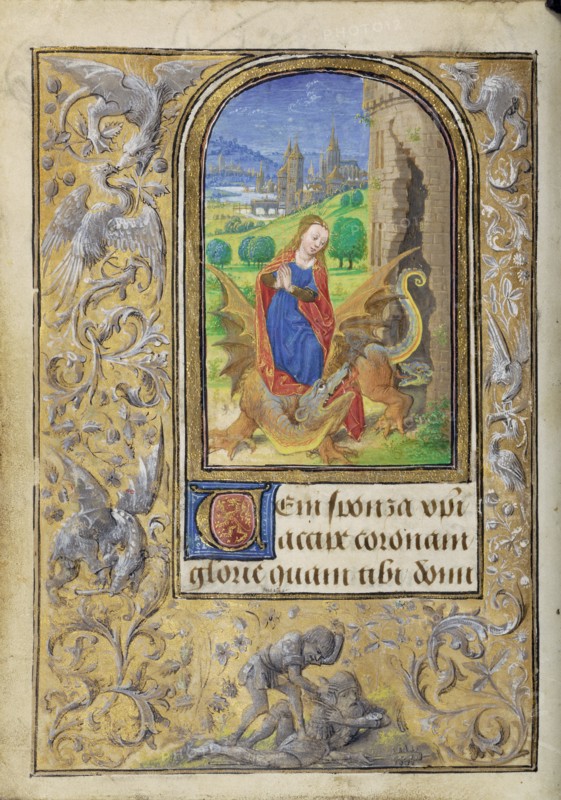 PHOTO12
Veni sponza xpi
accipe coronam
glorie quam tibi domi